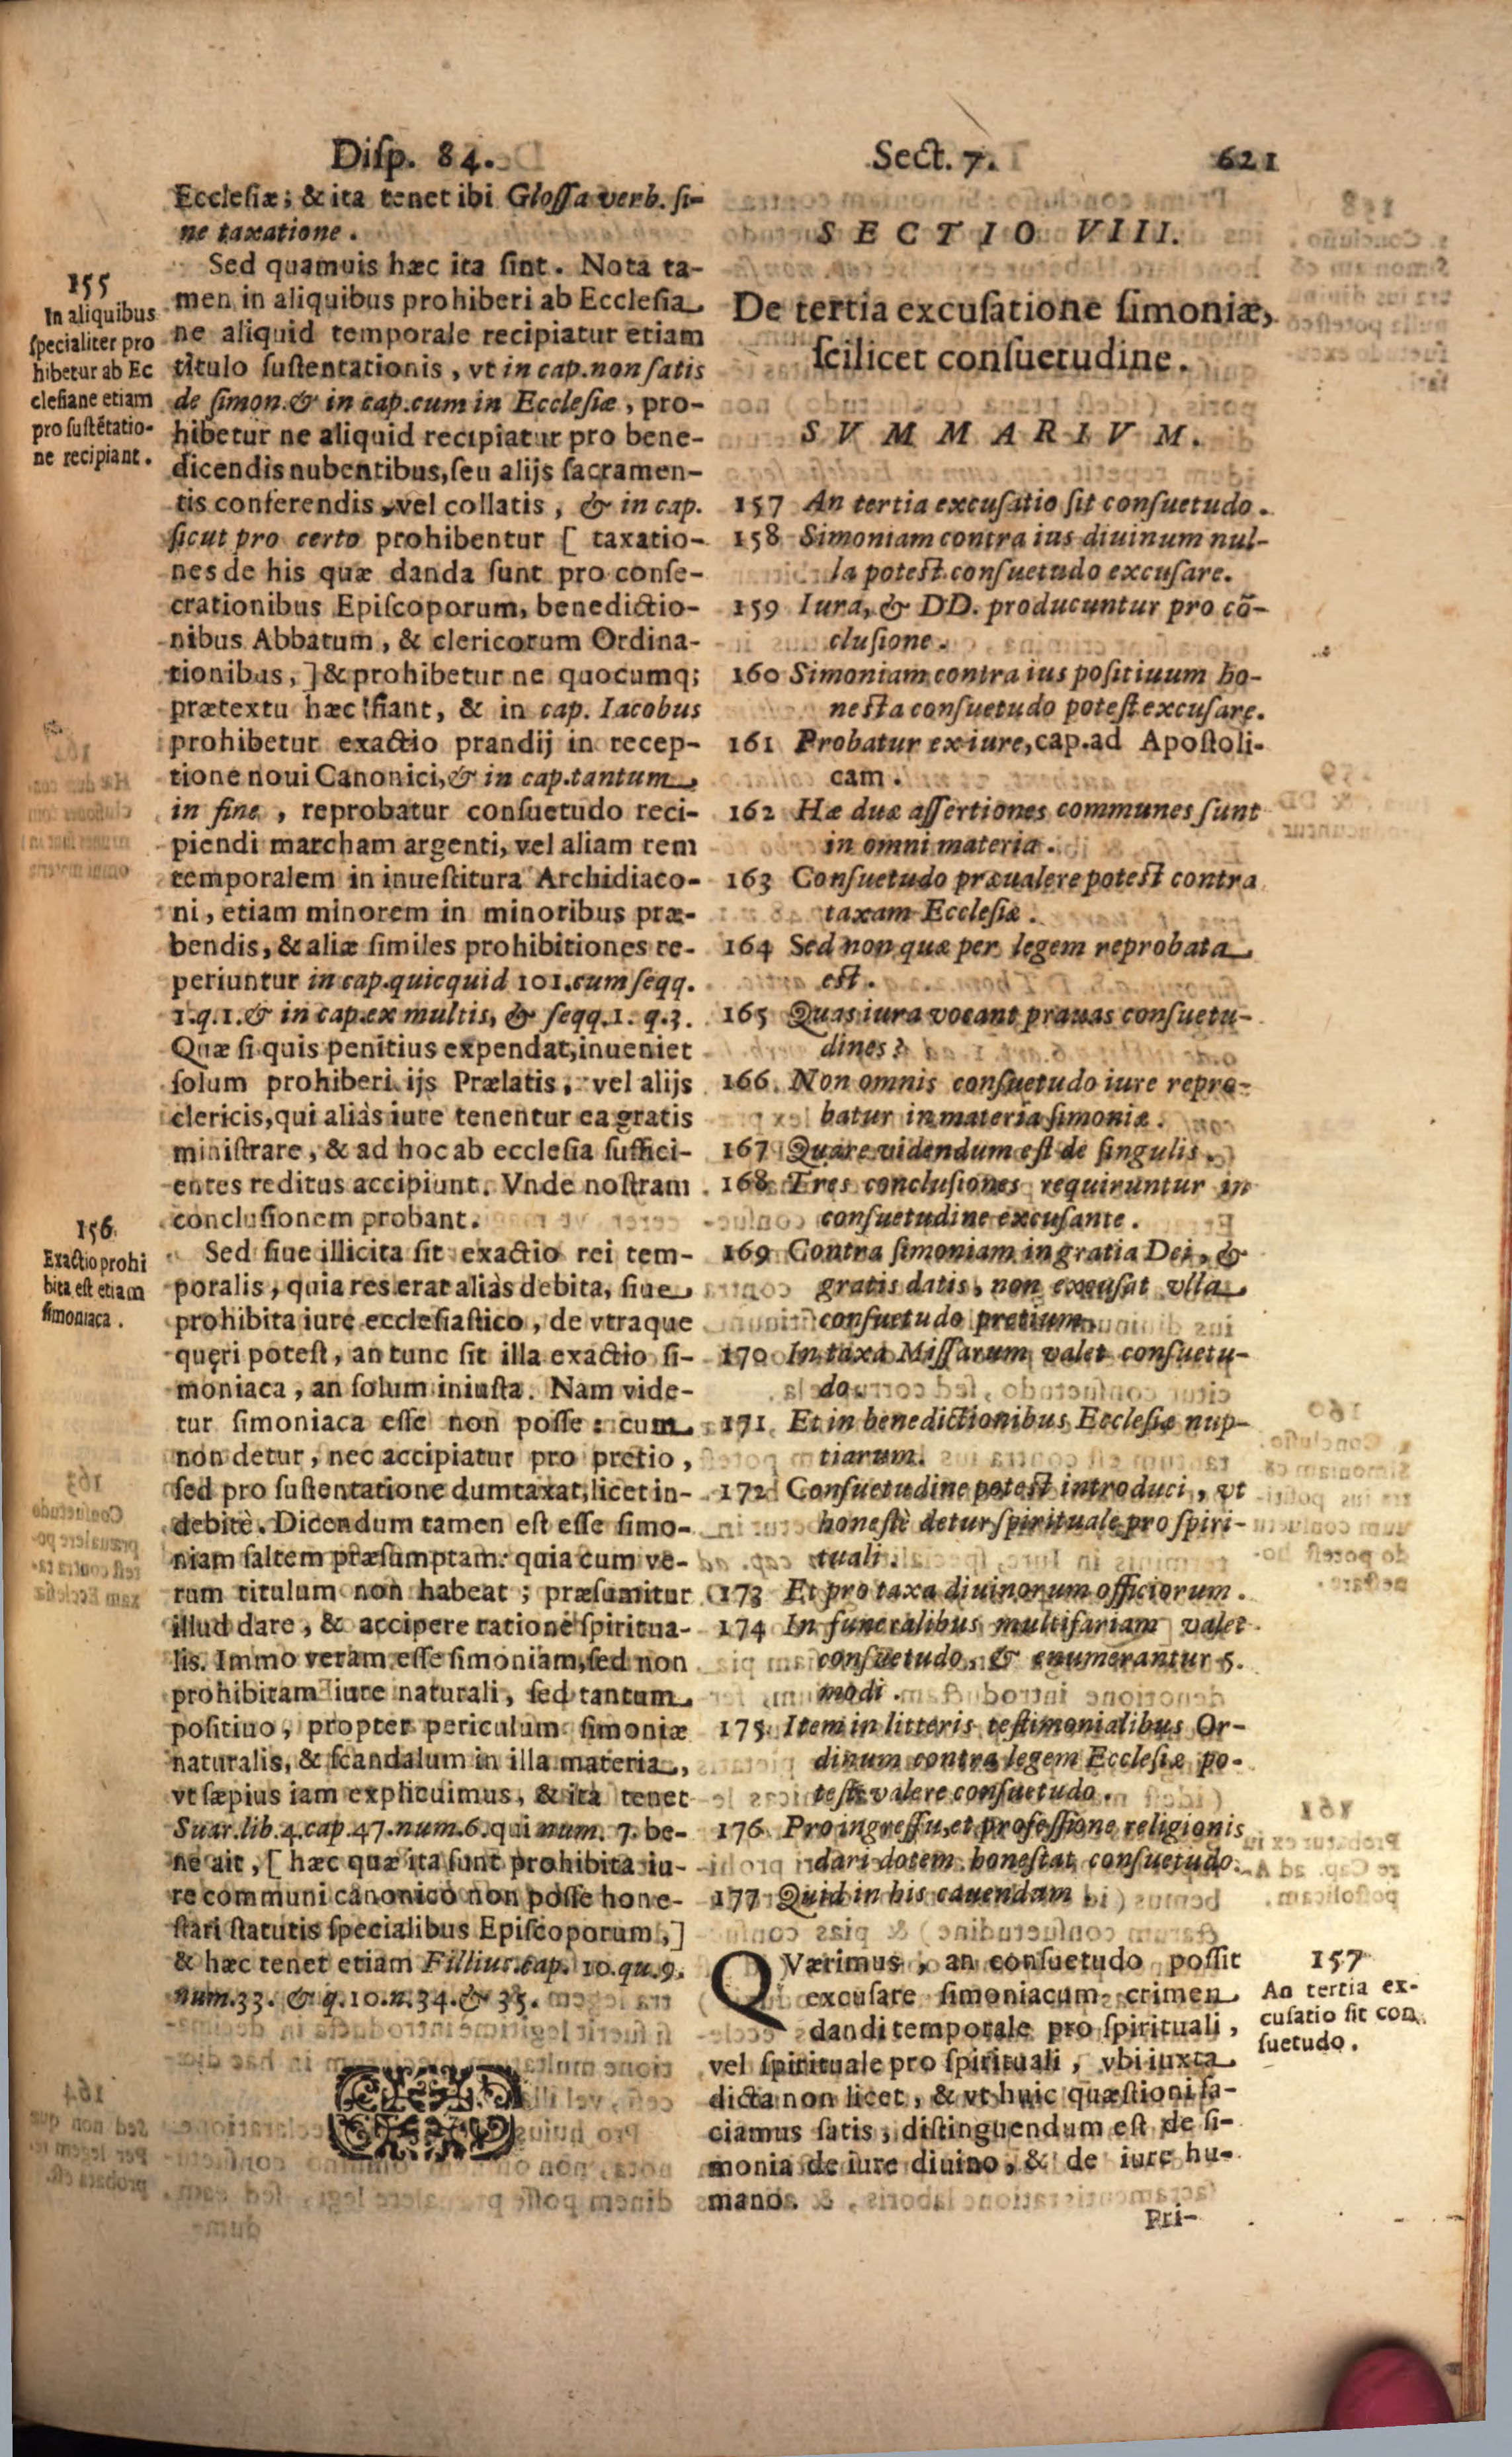 Disp. 84. Sect. 7. 621
Ecclesiæ; & ita tenet ibi Glossa verb. si-
ne taxatione.
155
In aliquibus
specialiter pro
hibetur ab Ec
clesiane etiam
pro sustẽtatio-
ne recipiant.
Sed quamuis hæc ita sint. Nota ta-
men in aliquibus prohiberi ab Ecclesia
ne aliquid temporale recipiatur etiam
titulo sustentationis, vt in cap. non satis
de simon. & in cap. cum in Ecclesiæ, pro-
hibetur ne aliquid recipiatur pro bene-
dicendis nubentibus, seu alijs sacramen-
tis conferendis, vel collatis, & in cap.
sicut pro certo prohibentur [ taxatio-
nes de his quæ danda sunt pro conse-
crationibus Episcoporum, benedictio-
nibus Abbatum, & clericorum Ordina-
tionibus, ] & prohibetur ne quocumq;
prætextu hæc fiant, & in cap. Iacobus
prohibetur exactio prandij in recep-
tione noui Canonici, & in cap. tantum
in fine, reprobatur consuetudo reci-
piendi marcham argenti, vel aliam rem
temporalem in inuestitura Archidiaco-
ni, etiam minorem in minoribus præ-
bendis, & aliæ similes prohibitiones re-
periuntur in cap. quicquid 101. cum seqq.
1. q. 1. & in cap. ex multis, & seqq. 1. q. 3.
Quæ si quis penitius expendat, inueniet
solum prohiberi ijs Prælatis, vel alijs
clericis, qui aliàs iure tenentur ea gratis
ministrare, & ad hoc ab ecclesia suffici-
entes reditus accipiunt. Vnde nostram
conclusionem probant.
156
Exactio prohi
bita est etiam
simoniaca.
Sed siue illicita sit exactio rei tem-
poralis, quia res erat aliàs debita, siue
prohibita iure ecclesiastico, de vtraque
quęri potest, an tunc sit illa exactio si-
moniaca, an solum iniusta. Nam vide-
tur simoniaca esse non posse: cum
non detur, nec accipiatur pro pretio,
sed pro sustentatione dumtaxat, licet in-
debitè. Dicendum tamen est esse simo-
niam saltem præsumptam: quia cum ve-
rum titulum non habeat; præsumitur
illud dare, & accipere ratione spiritua-
lis. Immo veram esse simoniam, sed non
prohibitam iure naturali, sed tantum
positiuo, propter periculum simoniæ
naturalis, & scandalum in illa materia,
vt sæpius iam explicuimus, & ita tenet
Suar. lib. 4. cap. 47. num. 6. qui num. 7. be-
ne ait, [ hæc quæ ita sunt prohibita iu-
re communi canonico non posse hone-
stari statutis specialibus Episcoporum, ]
& hæc tenet etiam Fillius. cap. 10. qu. 9.
num. 33. & q. 10. n. 34. & 35.
SECTIO VIII.
De tertia excusatione simoniæ,
scilicet consuetudine.
SVMMARIVM.
157 An tertia excusatio sit consuetudo.
158 Simoniam contra ius diuinum nul-
la potest consuetudo excusare.
159 Iura, & DD. producuntur pro cō-
clusione.
160 Simoniam contra ius positiuum ho-
nesta consuetudo potest excusare.
161 Probatur ex iure, cap. ad Apostoli-
cam.
162 Hæ duæ assertiones communes sunt
in omni materia.
163 Consuetudo præualere potest contra
taxam Ecclesiæ.
164 Sed non quæ per legem reprobata
est.
165 Quas iura vocant prauas consuetu-
dines?
166. Non omnis consuetudo iure repro-
batur in materia simoniæ.
167 Quare videndum est de singulis.
168 Tres conclusiones requiruntur in
consuetudine excusante.
169 Contra simoniam in gratia Dei, &
gratis datis, non excusat vlla
consuetudo pretium.
170 In taxa Missarum valet consuetu-
do.
171 Et in benedictionibus Ecclesiæ nup-
tiarum.
172 Consuetudine potest introduci, vt
honestè detur spirituale pro spiri-
tuali.
173 Et pro taxa diuinorum officiorum.
174 In funeralibus multifariam valet
consuetudo, & enumerantur 5.
modi.
175 Item in litteris testimonialibus Or-
dinum contra legem Ecclesiæ po-
test valere consuetudo.
176 Pro ingressu, et professione religionis
dari dotem honestat consuetudo.
177 Quid in his cauendum.
157
An tertia ex-
cusatio sit con
suetudo.
QVærimus, an consuetudo possit
excusare simoniacum crimen
dandi temporale pro spirituali,
vel spirituale pro spirituali, vbi iuxta
dicta non licet, & vt huic quæstioni fa-
ciamus satis, distinguendum est de si-
monia de iure diuino, & de iure hu-
mano.
Pri-